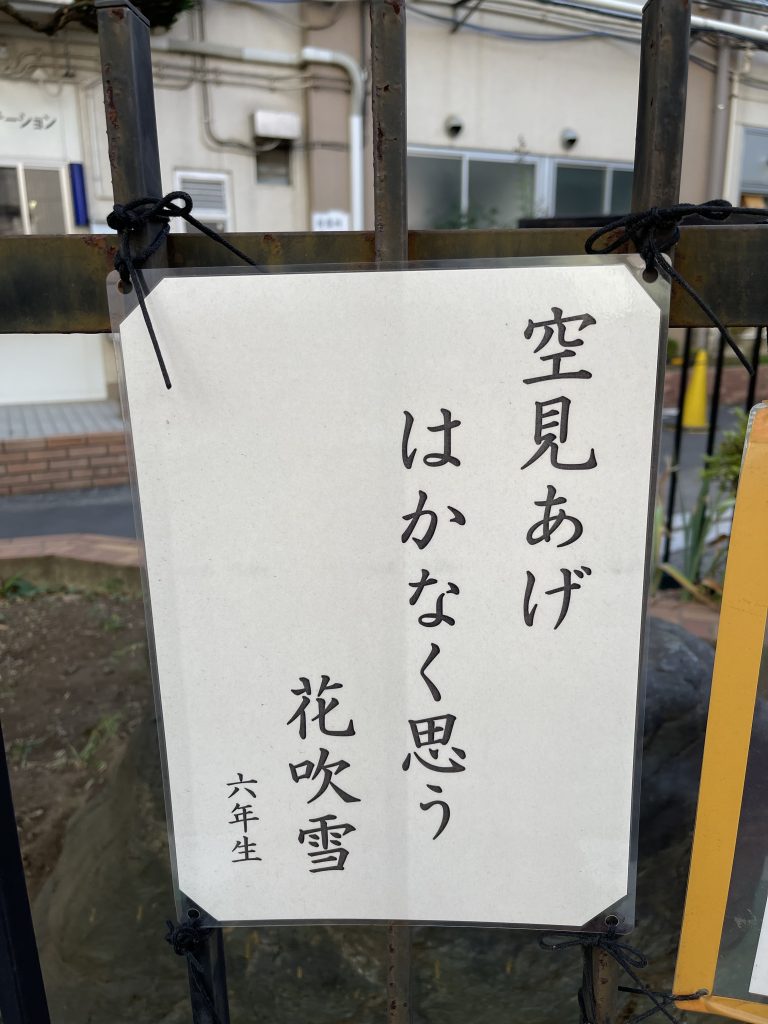 空見あげ
はかなく思う
花吹雪
六年生
ーション